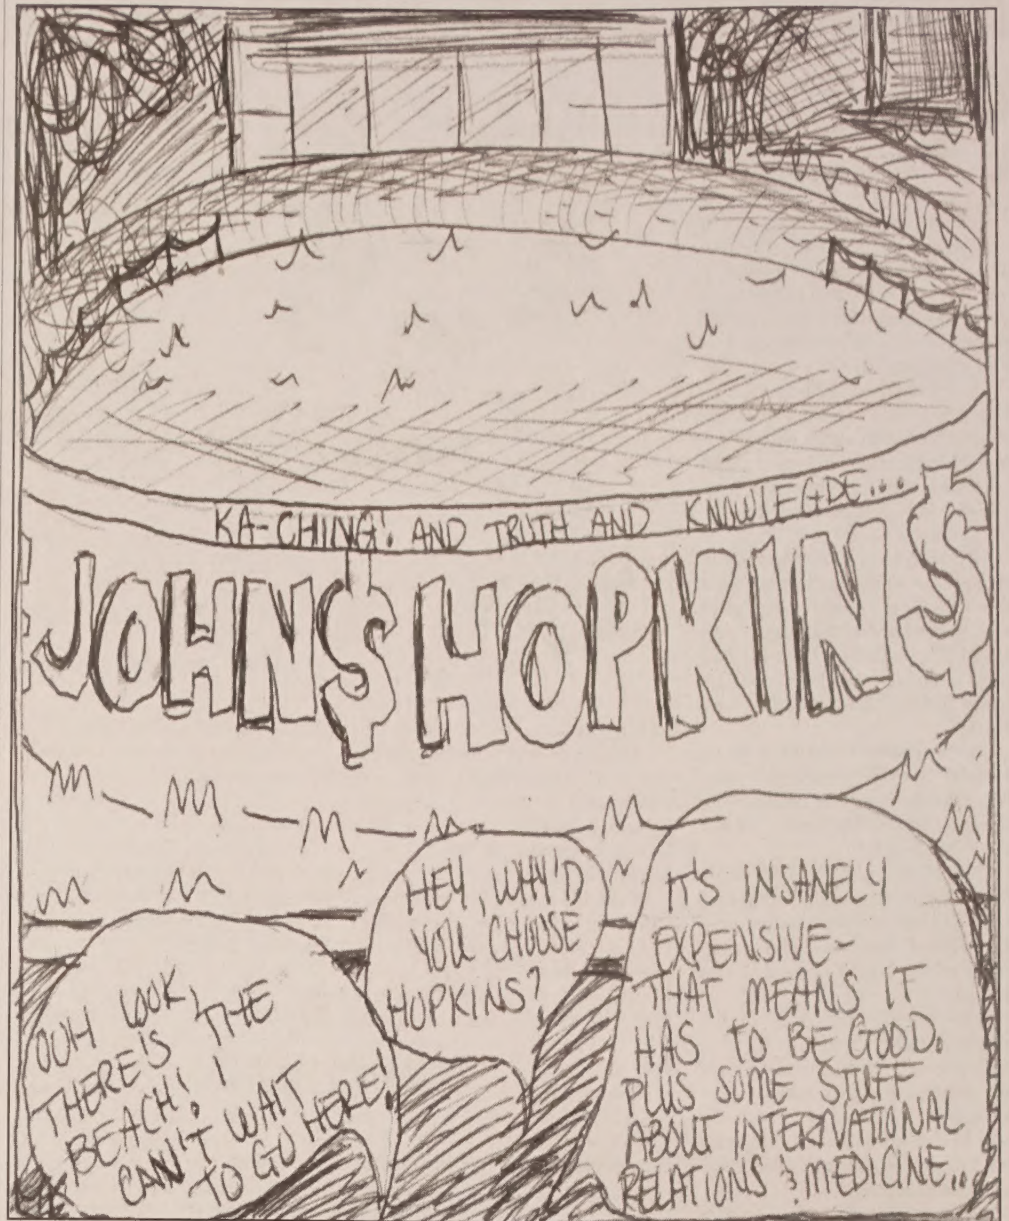 KA-CHING! AND TRUTH AND KNOWLEGDE...
JOHN$ HOPKIN$
OUH LOOK,
THERE'S THE
BEACH! I
CAN'T WAIT
TO GO HERE!
HEY, WHY'D
YOU CHOOSE
HOPKINS?
IT'S INSANELY
EXPENSIVE-
THAT MEANS IT
HAS TO BE GOOD.
PLUS SOME STUFF
ABOUT INTERNATIONAL
RELATIONS & MEDICINE...